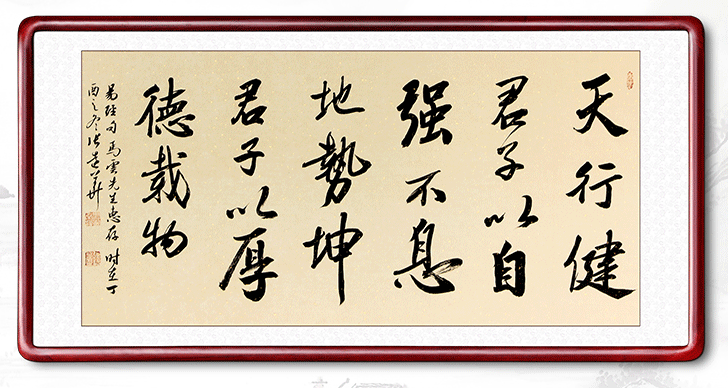 天行健
君子以自
强不息
地勢坤
君子以厚
德载物
易经句 馬雲先生惠存 时在丁
酉之冬